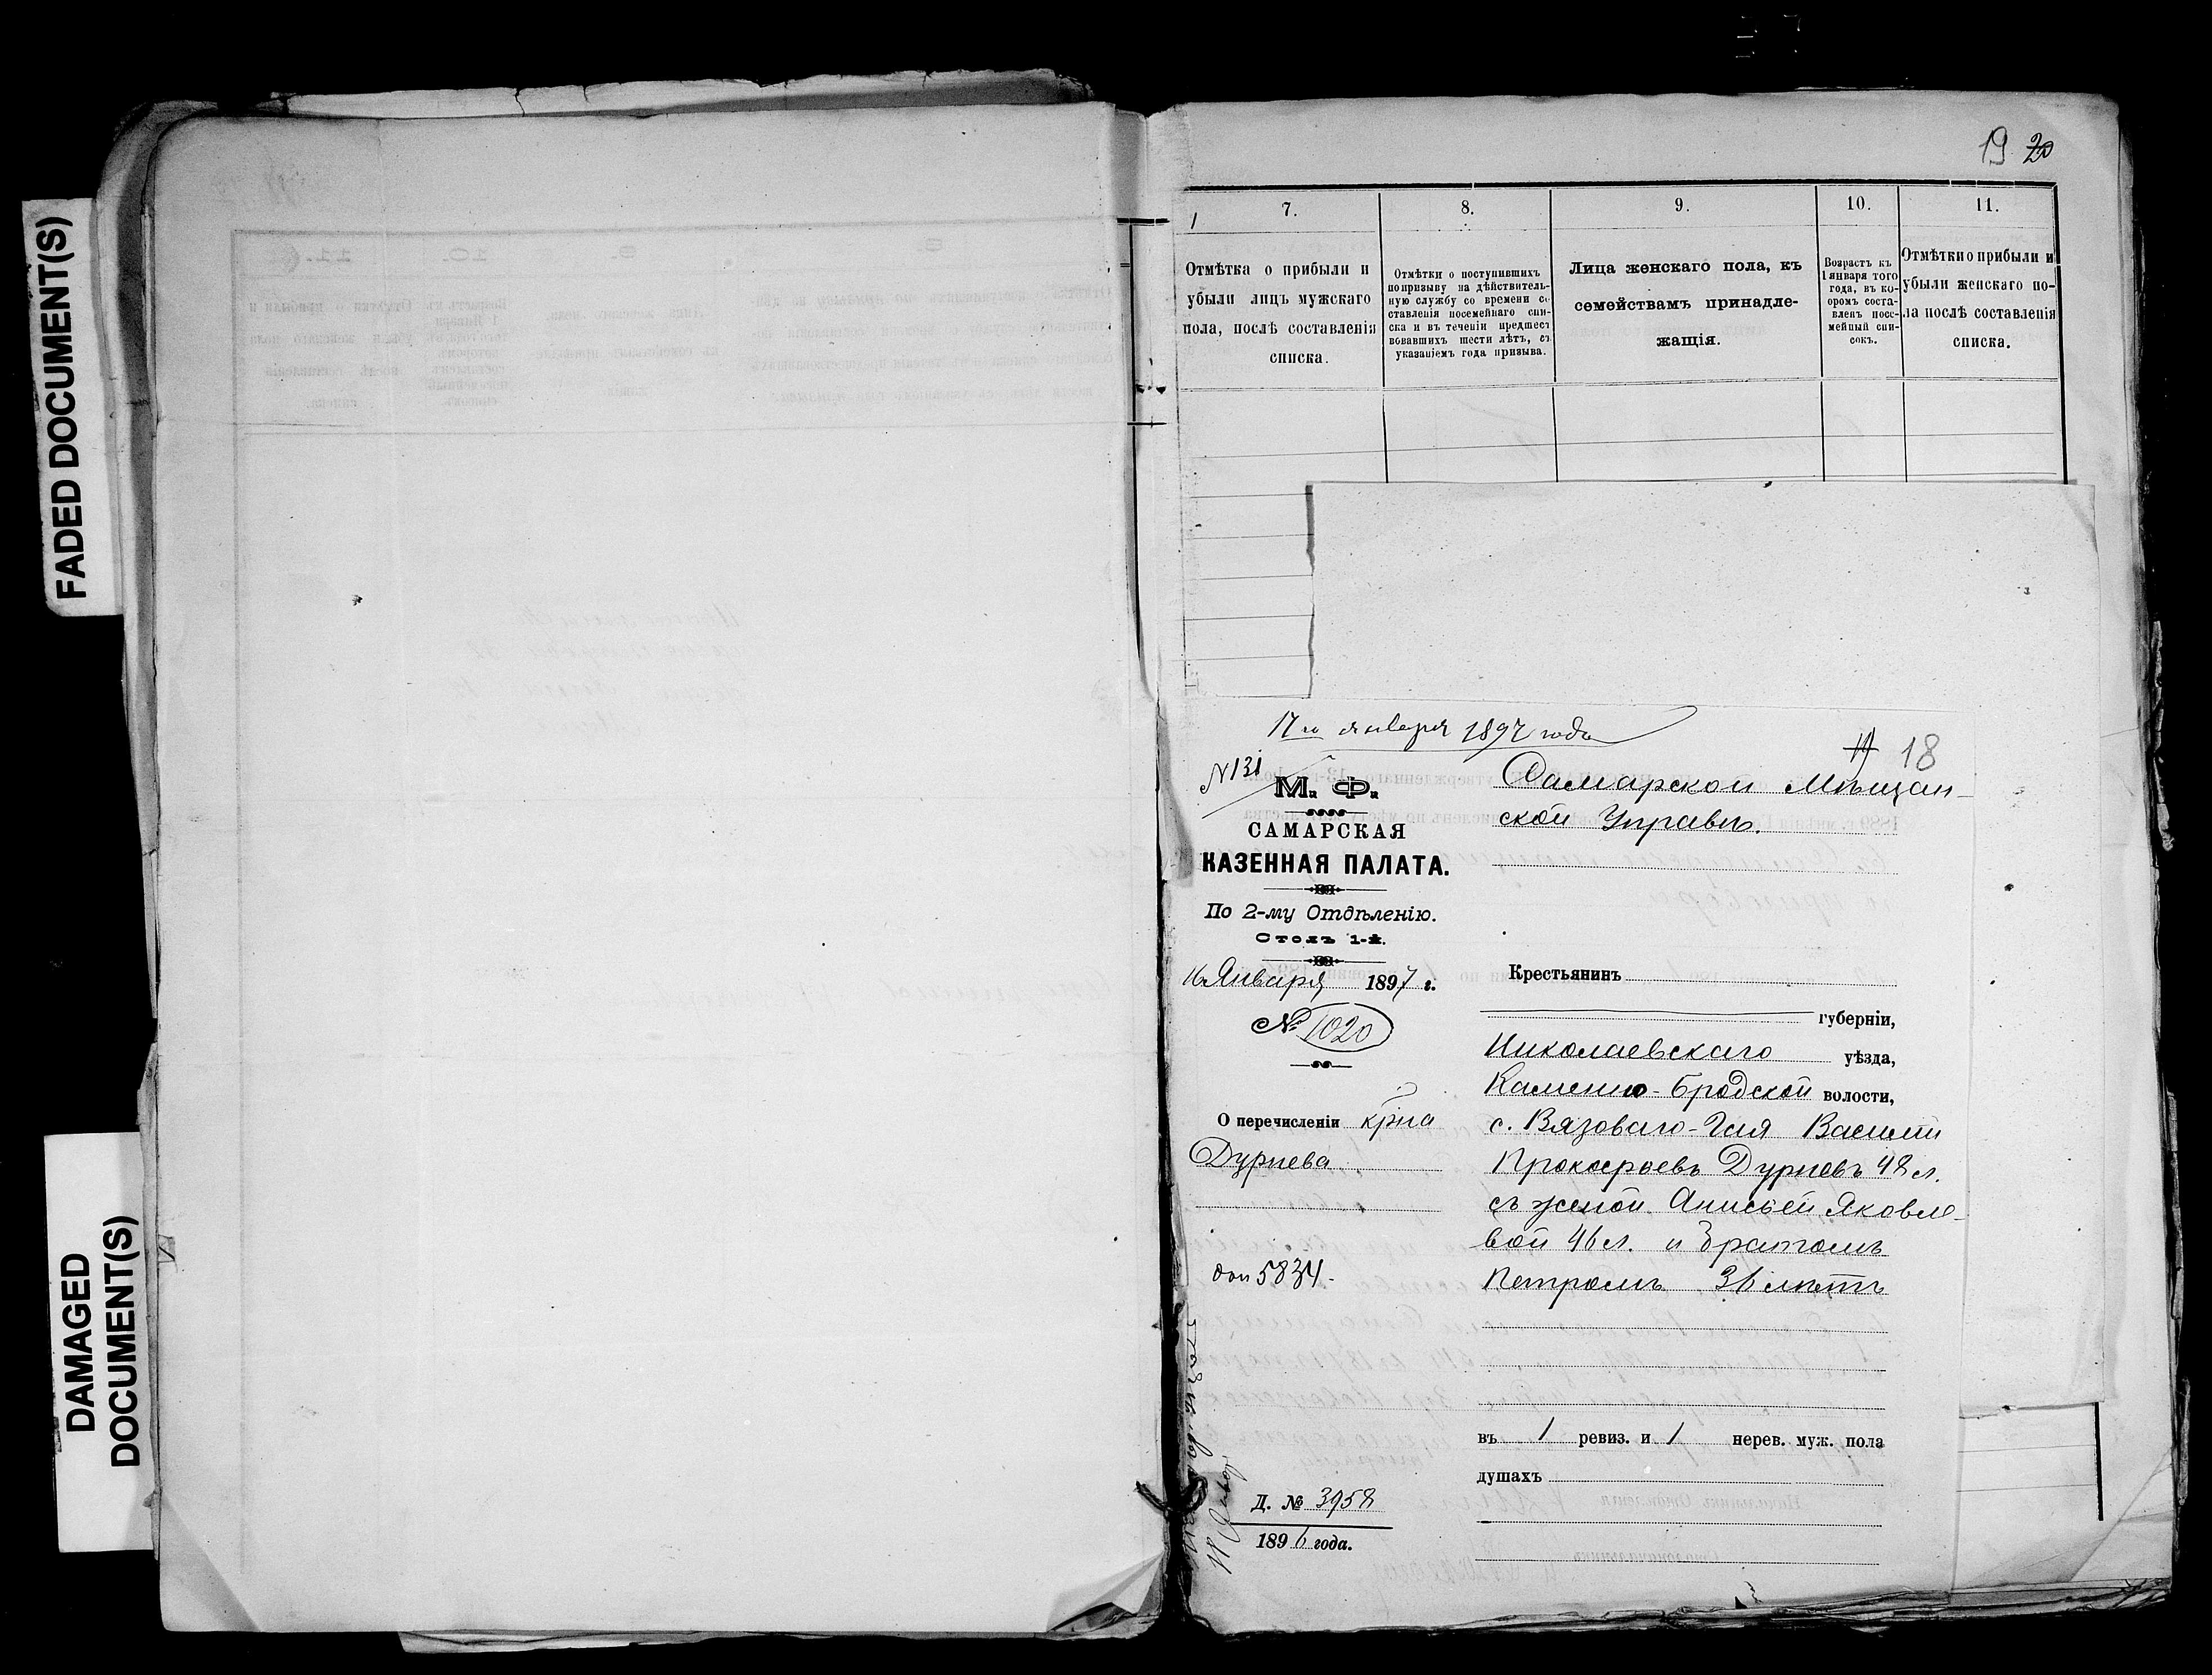 FADED DOCUMENT(S)
DAMAGED
DOCUMENT(S)
19 20
7.
8.
9.
10.
11.
Отмѣтка о прибыли и
убыли лицъ мужскаго
пола, послѣ составленія
списка.
Отмѣтки о поступившихъ
по призыву на дѣйствитель-
ную службу со времени со-
ставленія посемейнаго спи-
ска и въ теченіи предшест
вовавшихъ шести лѣтъ, съ
указаніемъ года призыва.
Лица женскаго пола, къ
семействамъ принадле-
жащія.
Возрастъ къ
1 января того
года, въ ко-
оромъ соста-
вленъ посе-
мейный спи-
сокъ.
Отмѣтки о прибыли и
убыли женскаго по-
ла послѣ составленія
списка.
17го января 1897 года
18
№ 131
М. Ф.
САМАРСКАЯ
КАЗЕННАЯ ПАЛАТА.
По 2-му Отдѣленію.
Столъ 1-й.
16 Января 1897 г.
№ 1020
О перечисленіи крна
Дурнева
5834.
Д. № 3958
1896 года.
Самарской Мѣщан-
ской Управѣ.
Крестьянинъ
губерніи,
Николаевскаго уѣзда,
Каменно-Бродской волости,
с. Вязоваго-Гая Василій
Прокофьевъ Дурневъ 48 л.
съ женой Анисьей Яковле-
вой 46 л. и братомъ
Петромъ 36 лѣтъ
въ 1 ревиз. и 1 нерев. муж. пола
душахъ